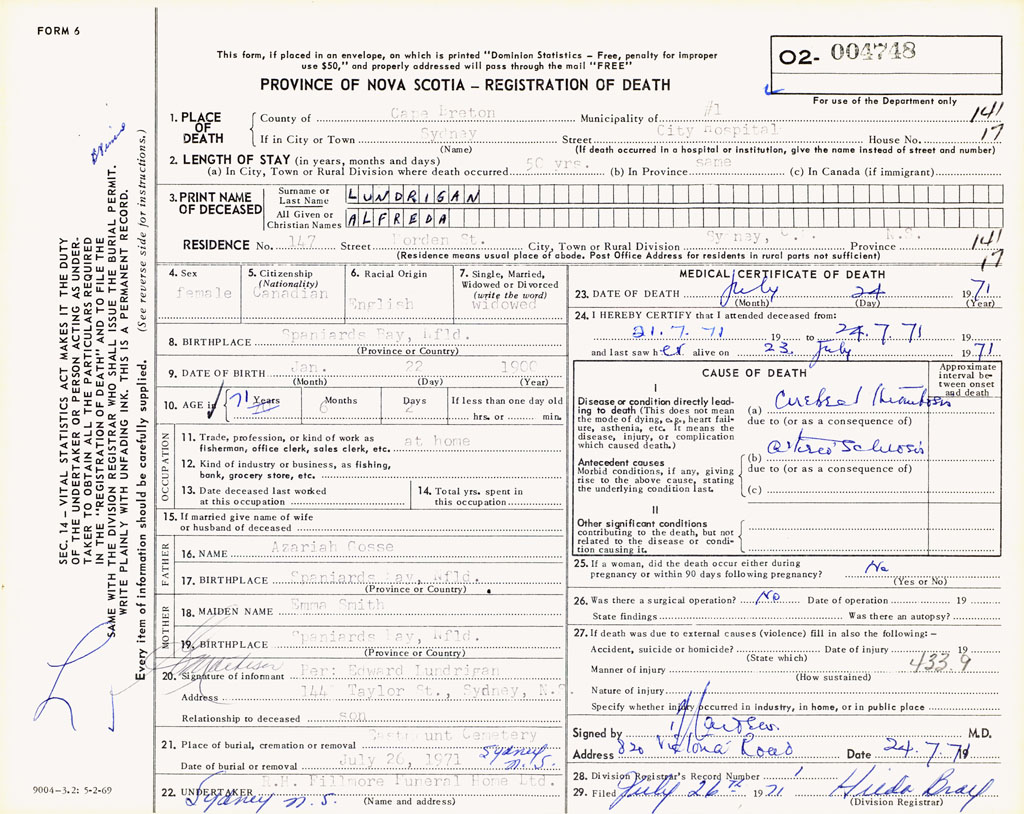 FORM 6
This form, if placed in an envelope, on which is printed "Dominion Statistics - Free, penalty for improper
use $50," and properly addressed will pass through the mail "FREE"
PROVINCE OF NOVA SCOTIA - REGISTRATION OF DEATH
02- 004748
For use of the Department only
1. PLACE OF DEATH
County of Cape Breton Municipality of #1 141
If in City or Town Sydney Street City Hospital House No. 17
(Name) (If death occurred in a hospital or institution, give the name instead of street and number)
2. LENGTH OF STAY (in years, months and days)
(a) In City, Town or Rural Division where death occurred 50 yrs. (b) In Province same (c) In Canada (if immigrant)
3. PRINT NAME OF DECEASED
Surname or Last Name LUNDRIGAN
All Given or Christian Names ALFREDA
RESIDENCE No. 147 Street Dorden St. City, Town or Rural Division Sydney, Province N.S. 141
(Residence means usual place of abode. Post Office Address for residents in rural parts not sufficient) 17
4. Sex female
5. Citizenship (Nationality) Canadian
6. Racial Origin English
7. Single, Married, Widowed or Divorced (write the word) widowed
8. BIRTHPLACE Spaniards Bay, Nfld.
(Province or Country)
9. DATE OF BIRTH Jan. 22 1900
(Month) (Day) (Year)
10. AGE in 71 Years 6 Months 2 Days If less than one day old
hrs. or min.
OCCUPATION
11. Trade, profession, or kind of work as fisherman, office clerk, sales clerk, etc. at home
12. Kind of industry or business, as fishing, bank, grocery store, etc.
13. Date deceased last worked at this occupation
14. Total yrs. spent in this occupation
15. If married give name of wife or husband of deceased
FATHER
16. NAME Azariah Gosse
17. BIRTHPLACE Spaniards Bay, Nfld.
(Province or Country)
MOTHER
18. MAIDEN NAME Emma Smith
19. BIRTHPLACE Spaniards Bay, Nfld.
(Province or Country)
20. Signature of informant Per: Edward Lundrigan
Address 144 Taylor St., Sydney, N.S.
Relationship to deceased son
21. Place of burial, cremation or removal Eastmount Cemetery Sydney N.S.
Date of burial or removal July 26, 1971
22. UNDERTAKER R.H. Fillmore Funeral Home Ltd.
Sydney N.S. (Name and address)
MEDICAL CERTIFICATE OF DEATH
23. DATE OF DEATH July 24 1971
(Month) (Day) (Year)
24. I HEREBY CERTIFY that I attended deceased from:
21.7.71 19 to 24.7.71
and last saw her alive on 23. July 1971
CAUSE OF DEATH
Approximate interval between onset and death
I
Disease or condition directly leading to death (This does not mean the mode of dying, e.g., heart failure, asthenia, etc. It means the disease, injury, or complication which caused death.)
(a) Cerebral Thrombosis
due to (or as a consequence of)
Antecedent causes
Morbid conditions, if any, giving rise to the above cause, stating the underlying condition last.
(b) Arteriosclerosis
due to (or as a consequence of)
(c)
II
Other significant conditions
contributing to the death, but not related to the disease or condition causing it.
25. If a woman, did the death occur either during pregnancy or within 90 days following pregnancy? No
(Yes or No)
26. Was there a surgical operation? No Date of operation 19
State findings Was there an autopsy?
27. If death was due to external causes (violence) fill in also the following: -
Accident, suicide or homicide? Date of injury 19
(State which) 433.9
Manner of injury
(How sustained)
Nature of injury
Specify whether injury occurred in industry, in home, or in public place
Signed by M.D.
Address 820 Victoria Road Date 24.7.71
28. Division Registrar's Record Number 1
29. Filed July 26th 1971 Hilda Bray
(Division Registrar)
SEC. 14 - VITAL STATISTICS ACT MAKES IT THE DUTY
OF THE UNDERTAKER OR PERSON ACTING AS UNDER-
TAKER TO OBTAIN ALL THE PARTICULARS REQUIRED
IN THE "REGISTRATION OF DEATH" AND FILE THE
SAME WITH THE DIVISION REGISTRAR WHO SHALL ISSUE THE BURIAL PERMIT.
WRITE PLAINLY WITH UNFADING INK. THIS IS A PERMANENT RECORD.
Every item of information should be carefully supplied. (See reverse side for instructions.)
9004-3.2: 5-2-69